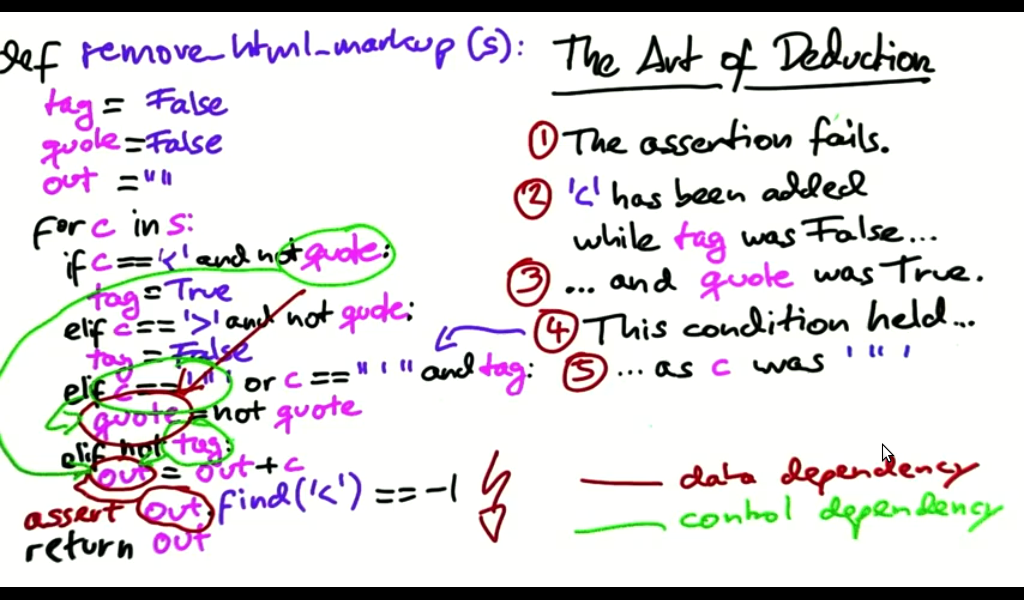 def remove_html_markup (s):
tag = False
quote = False
out = ""
for c in s:
if c == '<' and not quote:
tag = True
elif c == '>' and not quote:
tag = False
elif c == '"' or c == "'" and tag:
quote = not quote
elif not tag:
out = out + c
assert out.find('<') == -1
return out
The Art of Deduction
① The assertion fails.
② '<' has been added
while tag was False...
③ ... and quote was True.
④ This condition held...
⑤ ... as c was '"'
data dependency
control dependency